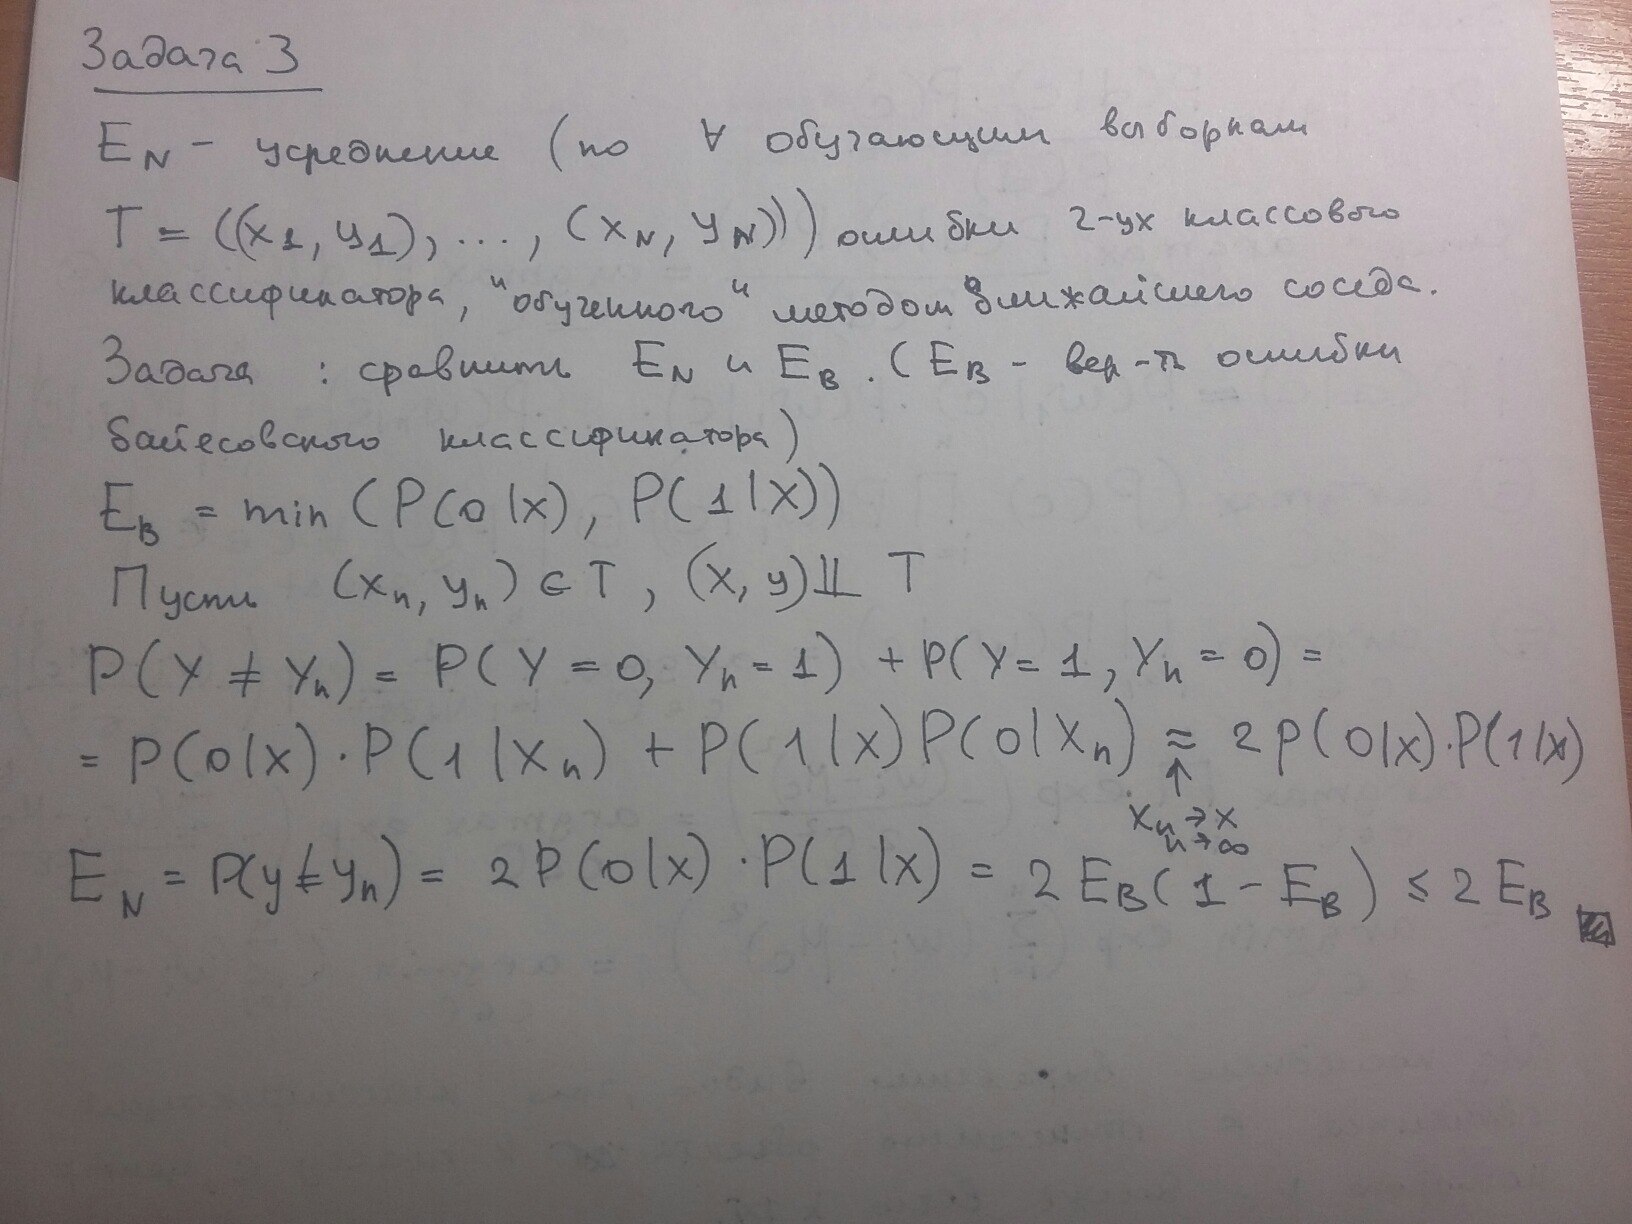 Задача 3
E_N - усреднение (по ∀ обучающим выборкам
T = ((x_1, y_1), ..., (x_N, y_N))) ошибки 2-ух классового
классификатора, "обученного" методом ближайшего соседа.
Задача : сравнить E_N и E_B. (E_B - вер-ть ошибки
байесовского классификатора)
E_B = min (P(0|x), P(1|x))
Пусть (x_n, y_n) ∈ T, (x, y) ⫫ T
P(Y ≠ Y_n) = P(Y = 0, Y_n = 1) + P(Y = 1, Y_n = 0) =
= P(0|x) · P(1|x_n) + P(1|x) P(0|x_n) ≈ 2P(0|x)·P(1|x)
↑
x_n → x
n→∞
E_N = P(y ≠ y_n) = 2P(0|x) · P(1|x) = 2E_B(1 - E_B) ≤ 2E_B